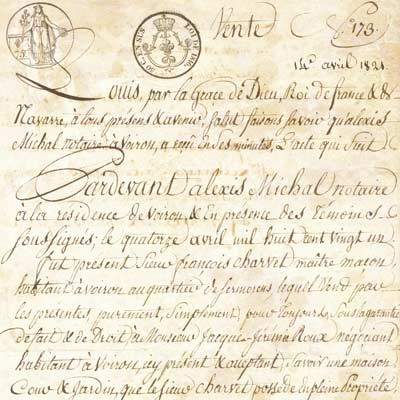 Vente
N.° 173.
14e avril 1821.
Louis, par la Grace de Dieu, Roi de france & de
Navarre, à tous presens & avenir, Salut faisons savoir qualexis
Michal notaire à Voiron, a reçu En des minutes, L'acte qui Suit
Pardevant alexis Michal notaire
à la residence de Voiron, & En présence des Témoins
soussignés; le quatorze avril mil huit cent vingt un
fut present Sieur françois Charvet maître maçon,
habitant à voiron au quartier de Sermorens lequel Vend par
les presentes purement, Simplement, pour toujours, Sous la garantie
de fait & de Droit à Monsieur Jacque-Jérémie Roux négociant
habitant à Voiron, icy présent & acceptant Savoir une maison
Cour & Jardin, que le Sieur Charvet possede En pleine Propriété,